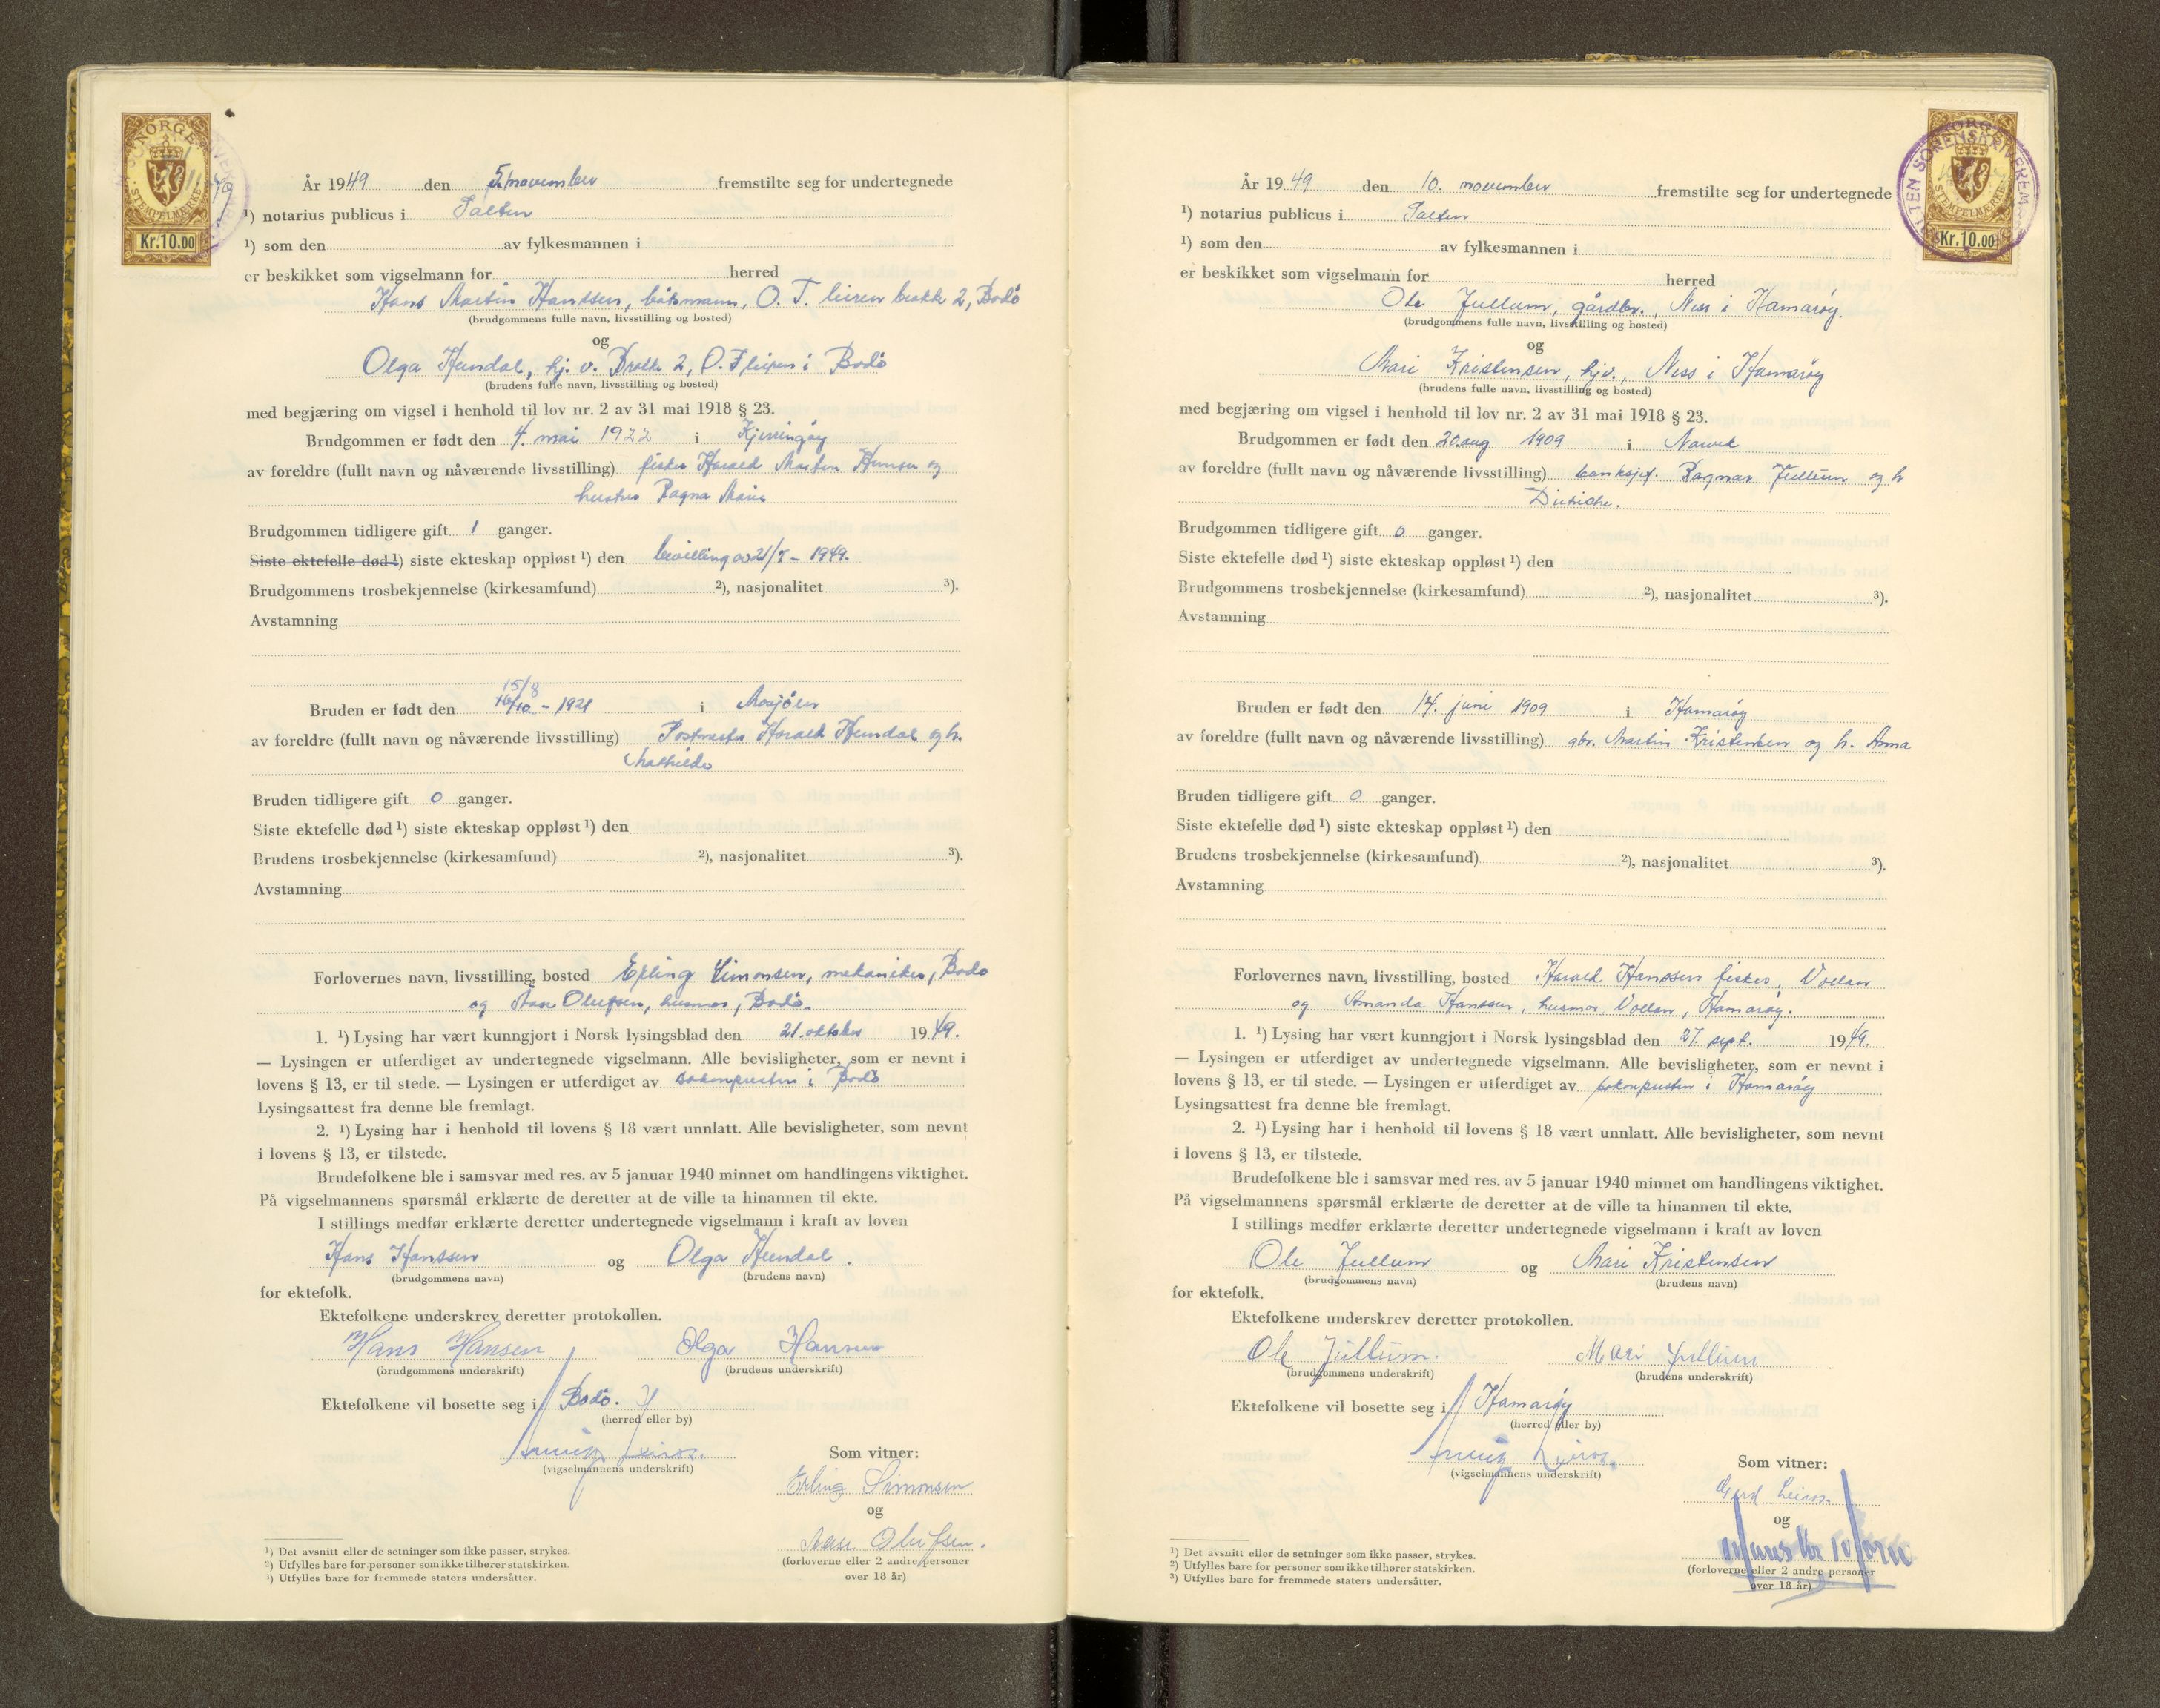 NORGE
STEMPELMERKE
Kr.10.00
År 1949 den 5. november fremstilte seg for undertegnede
¹) notarius publicus i Salten
¹) som den av fylkesmannen i
er beskikket som vigselmann for herred
Hans Martin Hanssen, båtsmann, O. T. leiren brakke 2, Bodö
(brudgommens fulle navn, livsstilling og bosted)
og
Olga Hundal, hj. v. Brakke 2, O.T leiren i Bodö
(brudens fulle navn, livsstilling og bosted)
med begjæring om vigsel i henhold til lov nr. 2 av 31 mai 1918 § 23.
Brudgommen er født den 4. mai 1922 i Kjerringöy
av foreldre (fullt navn og nåværende livsstilling) fisker Harald Martin Hansen og
hustru Ragna Marie
Brudgommen tidligere gift 1 ganger.
Siste ektefelle død ¹) siste ekteskap oppløst ¹) den bevilling av 21/7 - 1949.
Brudgommens trosbekjennelse (kirkesamfund) ²), nasjonalitet ³).
Avstamning
15/8
Bruden er født den 16/10 - 1921 i Mosjöen
av foreldre (fullt navn og nåværende livsstilling) Postmester Harald Hundal og h.
Mathilde
Bruden tidligere gift 0 ganger.
Siste ektefelle død ¹) siste ekteskap oppløst ¹) den
Brudens trosbekjennelse (kirkesamfund) ²), nasjonalitet ³).
Avstamning
Forlovernes navn, livsstilling, bosted Erling Simonsen, mekaniker, Bodö
og Aase Olufsen, husmor, Bodö.
1. ¹) Lysing har vært kunngjort i Norsk lysingsblad den 21. oktober 1949.
— Lysingen er utferdiget av undertegnede vigselmann. Alle bevisligheter, som er nevnt i
lovens § 13, er til stede. — Lysingen er utferdiget av soknepresten i Bodö
Lysingsattest fra denne ble fremlagt.
2. ¹) Lysing har i henhold til lovens § 18 vært unnlatt. Alle bevisligheter, som nevnt
i lovens § 13, er tilstede.
Brudefolkene ble i samsvar med res. av 5 januar 1940 minnet om handlingens viktighet.
På vigselmannens spørsmål erklærte de deretter at de ville ta hinannen til ekte.
I stillings medfør erklærte deretter undertegnede vigselmann i kraft av loven
Hans Hanssen og Olga Hundal.
(brudgommens navn) (brudens navn)
for ektefolk.
Ektefolkene underskrev deretter protokollen.
Hans Hansen Olga Hansen
(brudgommens underskrift) (brudens underskrift)
Ektefolkene vil bosette seg i Bodö.
(herred eller by)
(vigselmannens underskrift)
Som vitner:
Erling Simonsen
og
Aase Olufsen.
(forloverne eller 2 andre personer
over 18 år)
¹) Det avsnitt eller de setninger som ikke passer, strykes.
²) Utfylles bare for personer som ikke tilhører statskirken.
³) Utfylles bare for fremmede staters undersåtter.
NORGE
STEMPELMERKE
Kr.10.00
SALTEN SORENSKRIVEREMBETE
År 1949 den 10. november fremstilte seg for undertegnede
¹) notarius publicus i Salten
¹) som den av fylkesmannen i
er beskikket som vigselmann for herred
Ole Jullum, gårdbr., Ness i Hamaröy.
(brudgommens fulle navn, livsstilling og bosted)
og
Mari Kristensen, hjv., Ness i Hamaröy
(brudens fulle navn, livsstilling og bosted)
med begjæring om vigsel i henhold til lov nr. 2 av 31 mai 1918 § 23.
Brudgommen er født den 20. aug 1909 i Narvik
av foreldre (fullt navn og nåværende livsstilling) banksjef. Ragnar Jullum og h
Brudgommen tidligere gift 0 ganger.
Siste ektefelle død ¹) siste ekteskap oppløst ¹) den
Brudgommens trosbekjennelse (kirkesamfund) ²), nasjonalitet ³).
Avstamning
Bruden er født den 14. juni 1909 i Hamaröy
av foreldre (fullt navn og nåværende livsstilling) gbr. Martin Kristensen og h. Anna
Bruden tidligere gift 0 ganger.
Siste ektefelle død ¹) siste ekteskap oppløst ¹) den
Brudens trosbekjennelse (kirkesamfund) ²), nasjonalitet ³).
Avstamning
Forlovernes navn, livsstilling, bosted Harald Hanssen fisker, Vollan
og Amanda Hanssen, husmor, Vollan, Hamaröy.
1. ¹) Lysing har vært kunngjort i Norsk lysingsblad den 27. sept. 1949.
— Lysingen er utferdiget av undertegnede vigselmann. Alle bevisligheter, som er nevnt i
lovens § 13, er til stede. — Lysingen er utferdiget av soknepresten i Hamaröy
Lysingsattest fra denne ble fremlagt.
2. ¹) Lysing har i henhold til lovens § 18 vært unnlatt. Alle bevisligheter, som nevnt
i lovens § 13, er tilstede.
Brudefolkene ble i samsvar med res. av 5 januar 1940 minnet om handlingens viktighet.
På vigselmannens spørsmål erklærte de deretter at de ville ta hinannen til ekte.
I stillings medfør erklærte deretter undertegnede vigselmann i kraft av loven
Ole Jullum og Mari Kristensen
(brudgommens navn) (brudens navn)
for ektefolk.
Ektefolkene underskrev deretter protokollen.
Ole Jullum. Mari Jullum
(brudgommens underskrift) (brudens underskrift)
Ektefolkene vil bosette seg i Hamaröy
(herred eller by)
(vigselmannens underskrift)
Som vitner:
Gerd Leiros.
og
(forloverne eller 2 andre personer
over 18 år)
¹) Det avsnitt eller de setninger som ikke passer, strykes.
²) Utfylles bare for personer som ikke tilhører statskirken.
³) Utfylles bare for fremmede staters undersåtter.